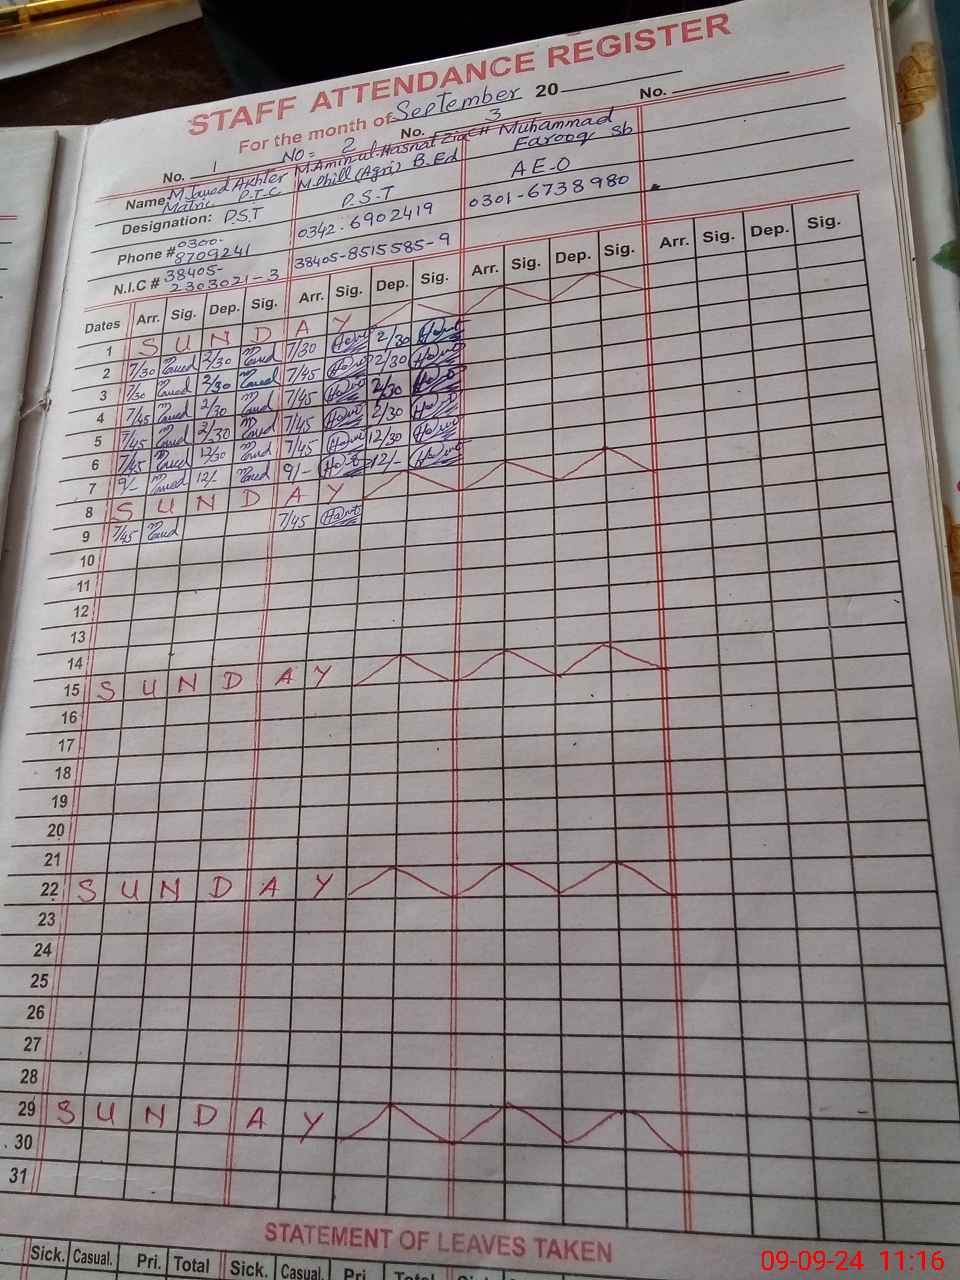 STAFF ATTENDANCE REGISTER
For the month of September 20
No. 1 No = 2 No. 3 No.
Name Akhter M.Amin-ul-Hasnat Muhammad
Matric P.T.C M.Phill (Agri) B.Ed Farooq Sb
Designation: P.S.T P.S.T A E-O
Phone # 0300- 0342-6902419 0301-6738980
8709241
N.I.C # 38405- 38405-8515585-9
2303021-3
Dates Arr. Sig. Dep. Sig. Arr. Sig. Dep. Sig. Arr. Sig. Dep. Sig. Arr. Sig. Dep. Sig.
1 S U N D A Y
2 7/30 2/30 7/30 2/30
3 7/30 2/30 7/45 2/30
4 7/45 2/30 7/45 2/30
5 7/45 2/30 7/45 2/30
6 7/45 12/30 7/45 12/30
7 9/- 12/- 9/- 12/-
8 S U N D A Y
9 7/45 7/45
10
11
12
13
14
15 S U N D A Y
16
17
18
19
20
21
22 S U N D A Y
23
24
25
26
27
28
29 S U N D A Y
30
31
STATEMENT OF LEAVES TAKEN
Sick. Casual. Pri. Total Sick. Casual. Pri. Total Sick.
09-09-24 11:16